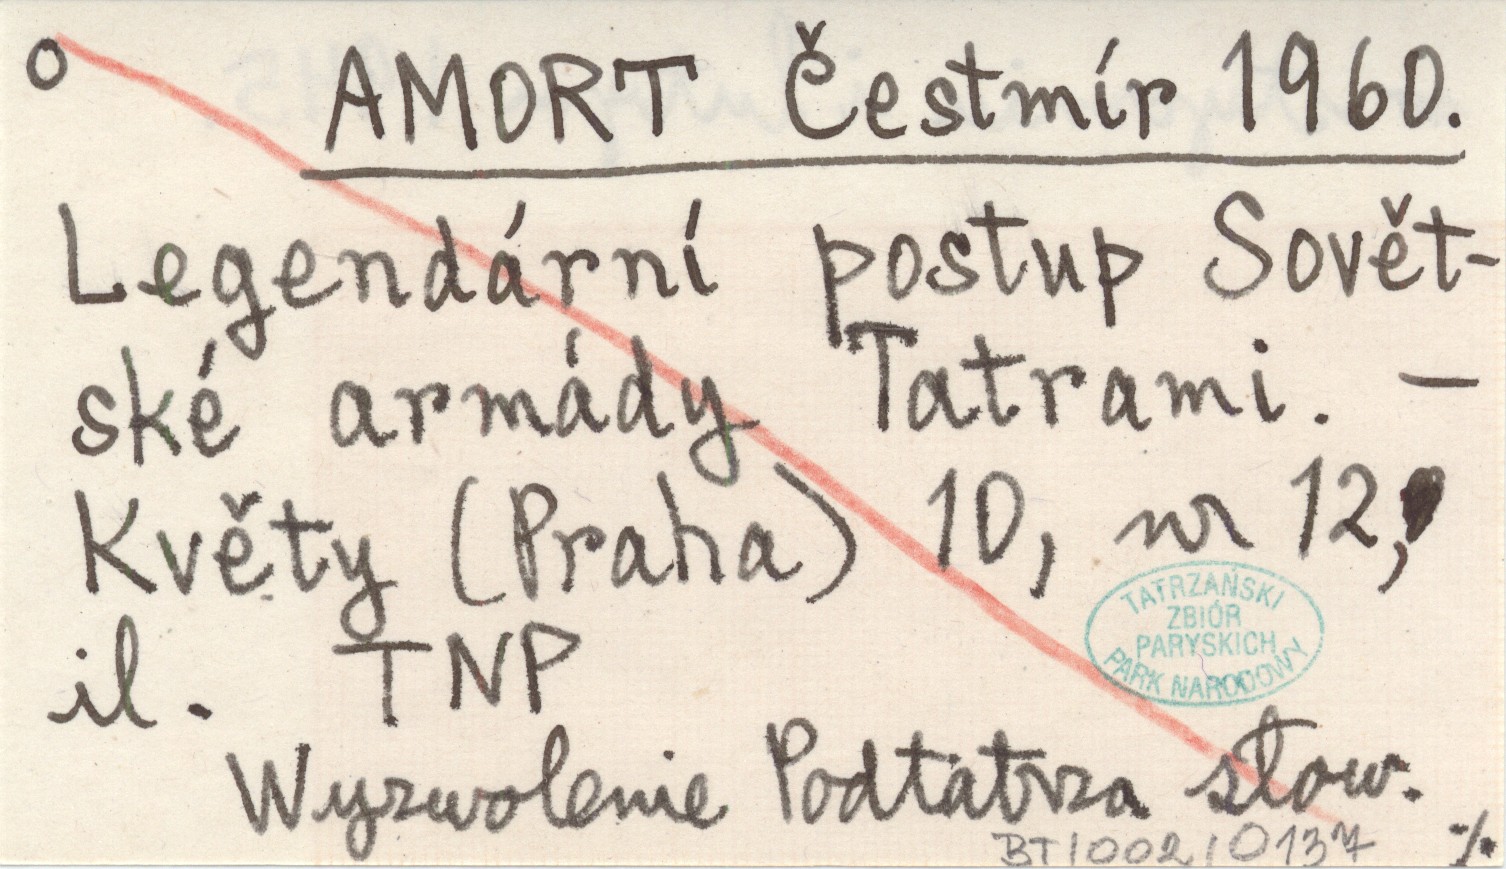 o AMORT Čestmír 1960.
Legendární postup Sovět-
ské armády Tatrami. —
Květy (Praha) 10, nr 12,
il. TNP
TATRZAŃSKI
ZBIÓR
PARYSKICH
PARK NARODOWY
Wyzwolenie Podtatrza słow.
BT/002/0137 ./.